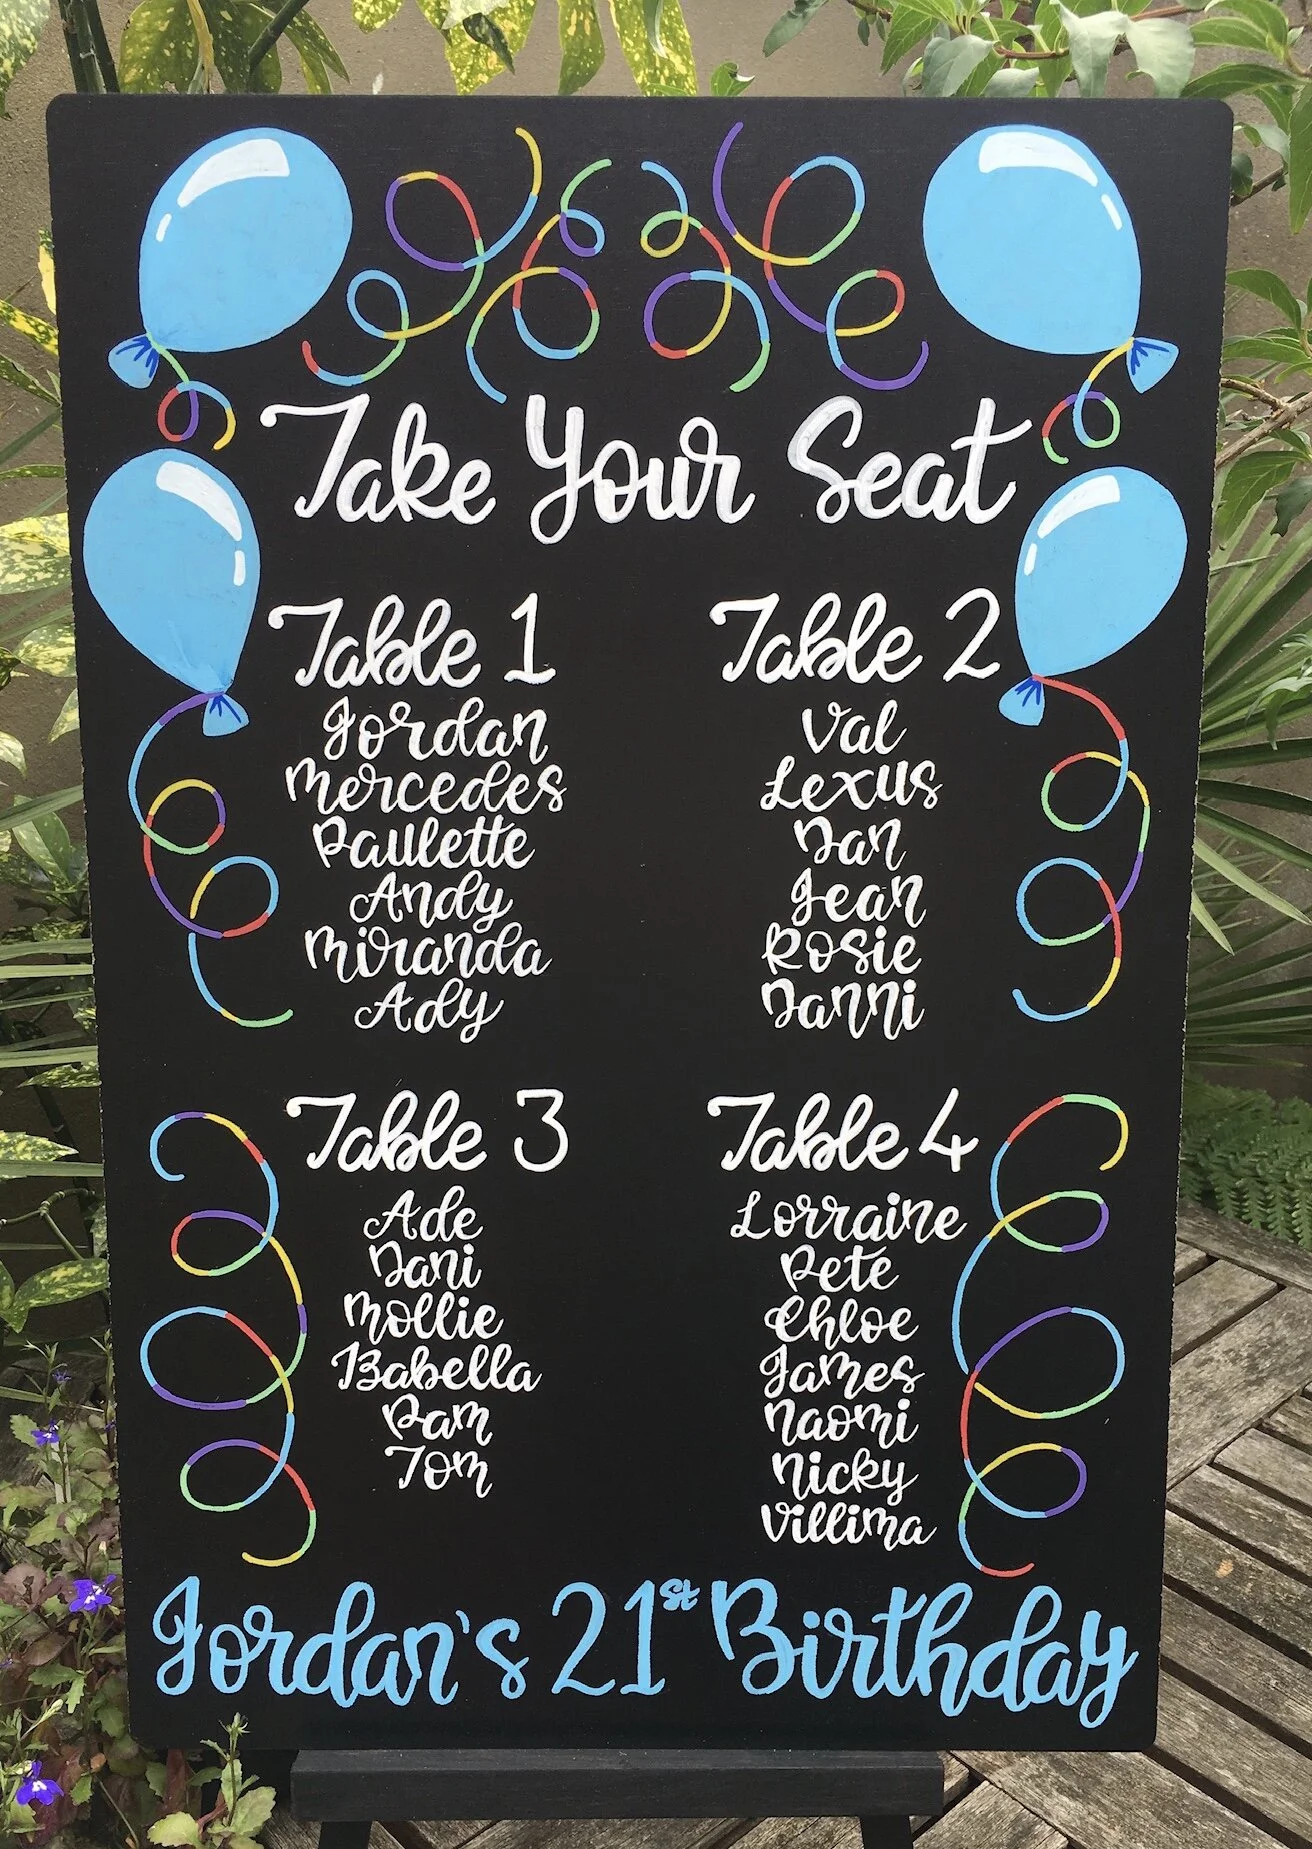 Take Your Seat
Table 1
Jordan
Mercedes
Paulette
Andy
Miranda
Ady
Table 2
Val
Lexus
Dan
Jean
Rosie
Danni
Table 3
Ade
Dani
Mollie
Babella
Pam
Tom
Table 4
Lorraine
Pete
Chloe
James
Naomi
Nicky
Villima
Jordan's 21st Birthday